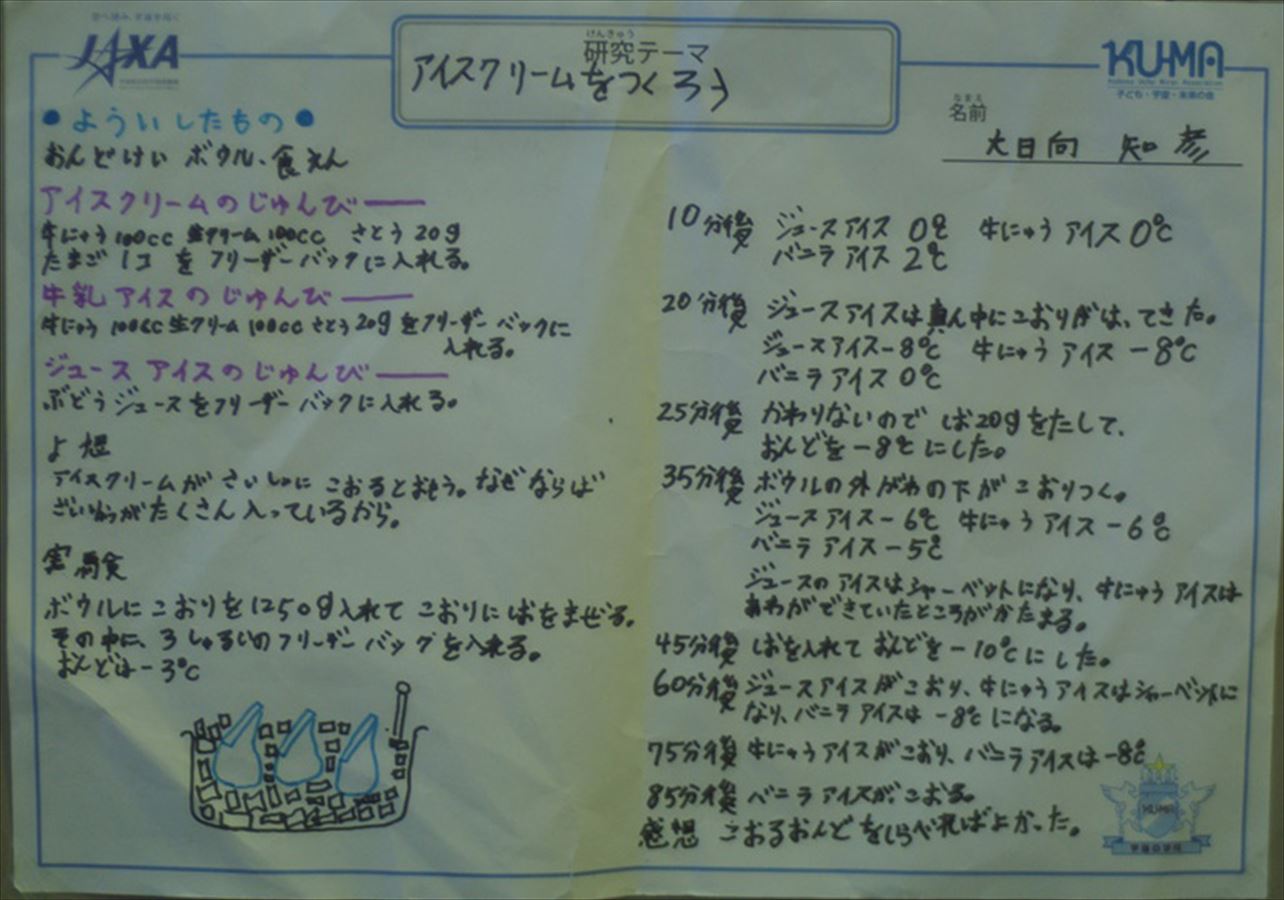 JAXA
けんきゅう
研究テーマ
アイスクリームをつくろう
KU-MA
子ども・宇宙・未来の会
なまえ
名前
大日向 知彦
・よういしたもの・
おんどけい ボウル、食えん
アイスクリームのじゅんび――
牛にゅう100cc 生クリーム100cc さとう20g
たまご1コ をフリーザーバックに入れる。
牛乳アイスのじゅんび――
牛にゅう100cc生クリーム100ccさとう20gをフリーザーバックに
入れる。
ジュースアイスのじゅんび――
ぶどうジュースをフリーザーバックに入れる。
よ想
アイスクリームがさいしょにこおるとおもう。なぜならば
ざいりょうがたくさん入っているから。
実験
ボウルにこおりを1250g入れてこおりにしおをまぜる。
その中に、3しゅるいのフリーザーバッグを入れる。
おんどは-3℃
10分後 ジュースアイス 0℃ 牛にゅうアイス0℃
バニラアイス 2℃
20分後 ジュースアイスは真ん中にこおりがは、てきた。
ジュースアイス-8℃ 牛にゅうアイス-8℃
バニラアイス0℃
25分後 かわりないのでしお20gをたして、
おんどを-8℃にした。
35分後 ボウルの外がわの下がこおりつく。
ジュースアイス-6℃ 牛にゅうアイス-6℃
バニラアイス-5℃
ジュースのアイスはシャーベットになり、牛にゅうアイスは
あわができていたところがかたまる。
45分後 しおを入れておんどを-10℃にした。
60分後 ジュースアイスがこおり、牛にゅうアイスはシャーベットに
なり、バニラアイスは-8℃になる。
75分後 牛にゅうアイスがこおり、バニラアイスは-8℃
85分後 バニラアイスが、こおる。
感想 こおるおんどをしらべればよかった。
KU-MA
宇宙の学校